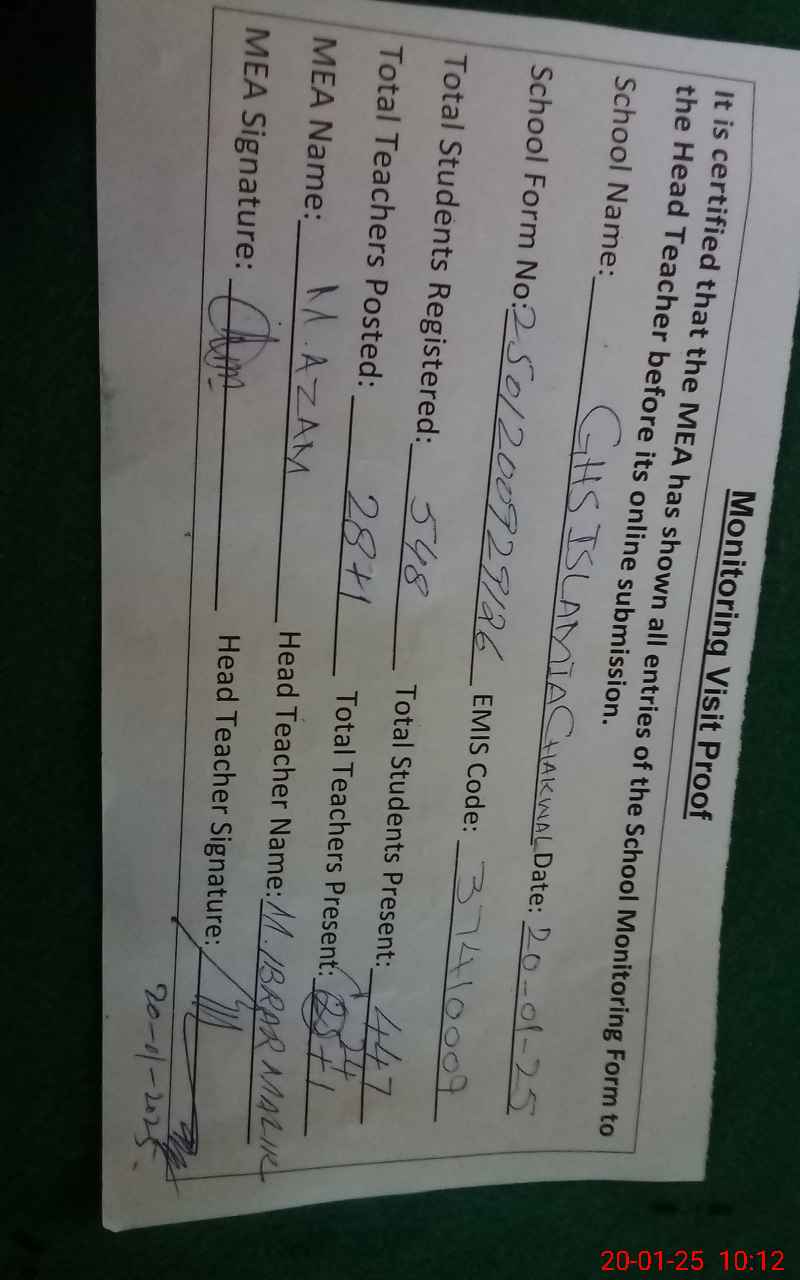 Monitoring Visit Proof
It is certified that the MEA has shown all entries of the School Monitoring Form to
the Head Teacher before its online submission.
School Name: GHS ISLAMIA CHAKWAL Date: 20-01-25
School Form No: EMIS Code: 37410009
Total Students Registered: 548 Total Students Present: 447
Total Teachers Posted: 28+1 Total Teachers Present: 24
MEA Name: M. AZAM Head Teacher Name: M. IBRAR MALIK
MEA Signature: Head Teacher Signature:
20-01-2025.
20-01-25 10:12